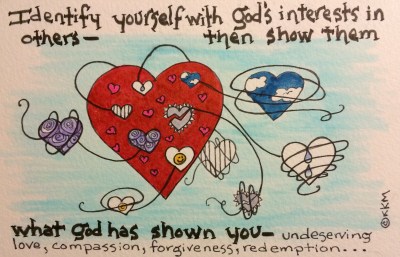 Identify yourself with God's interests in
others— then show them
what God has shown you— undeserving
love, compassion, forgiveness, redemption...
©KKM